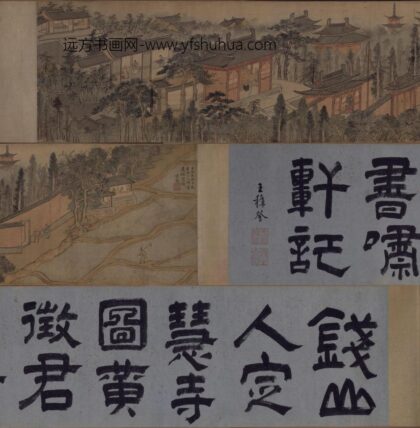 远方书画网-www.yfshuhua.com
錢山
人定
慧寺
圖黃
徵君
書嘯
軒記
王穉登